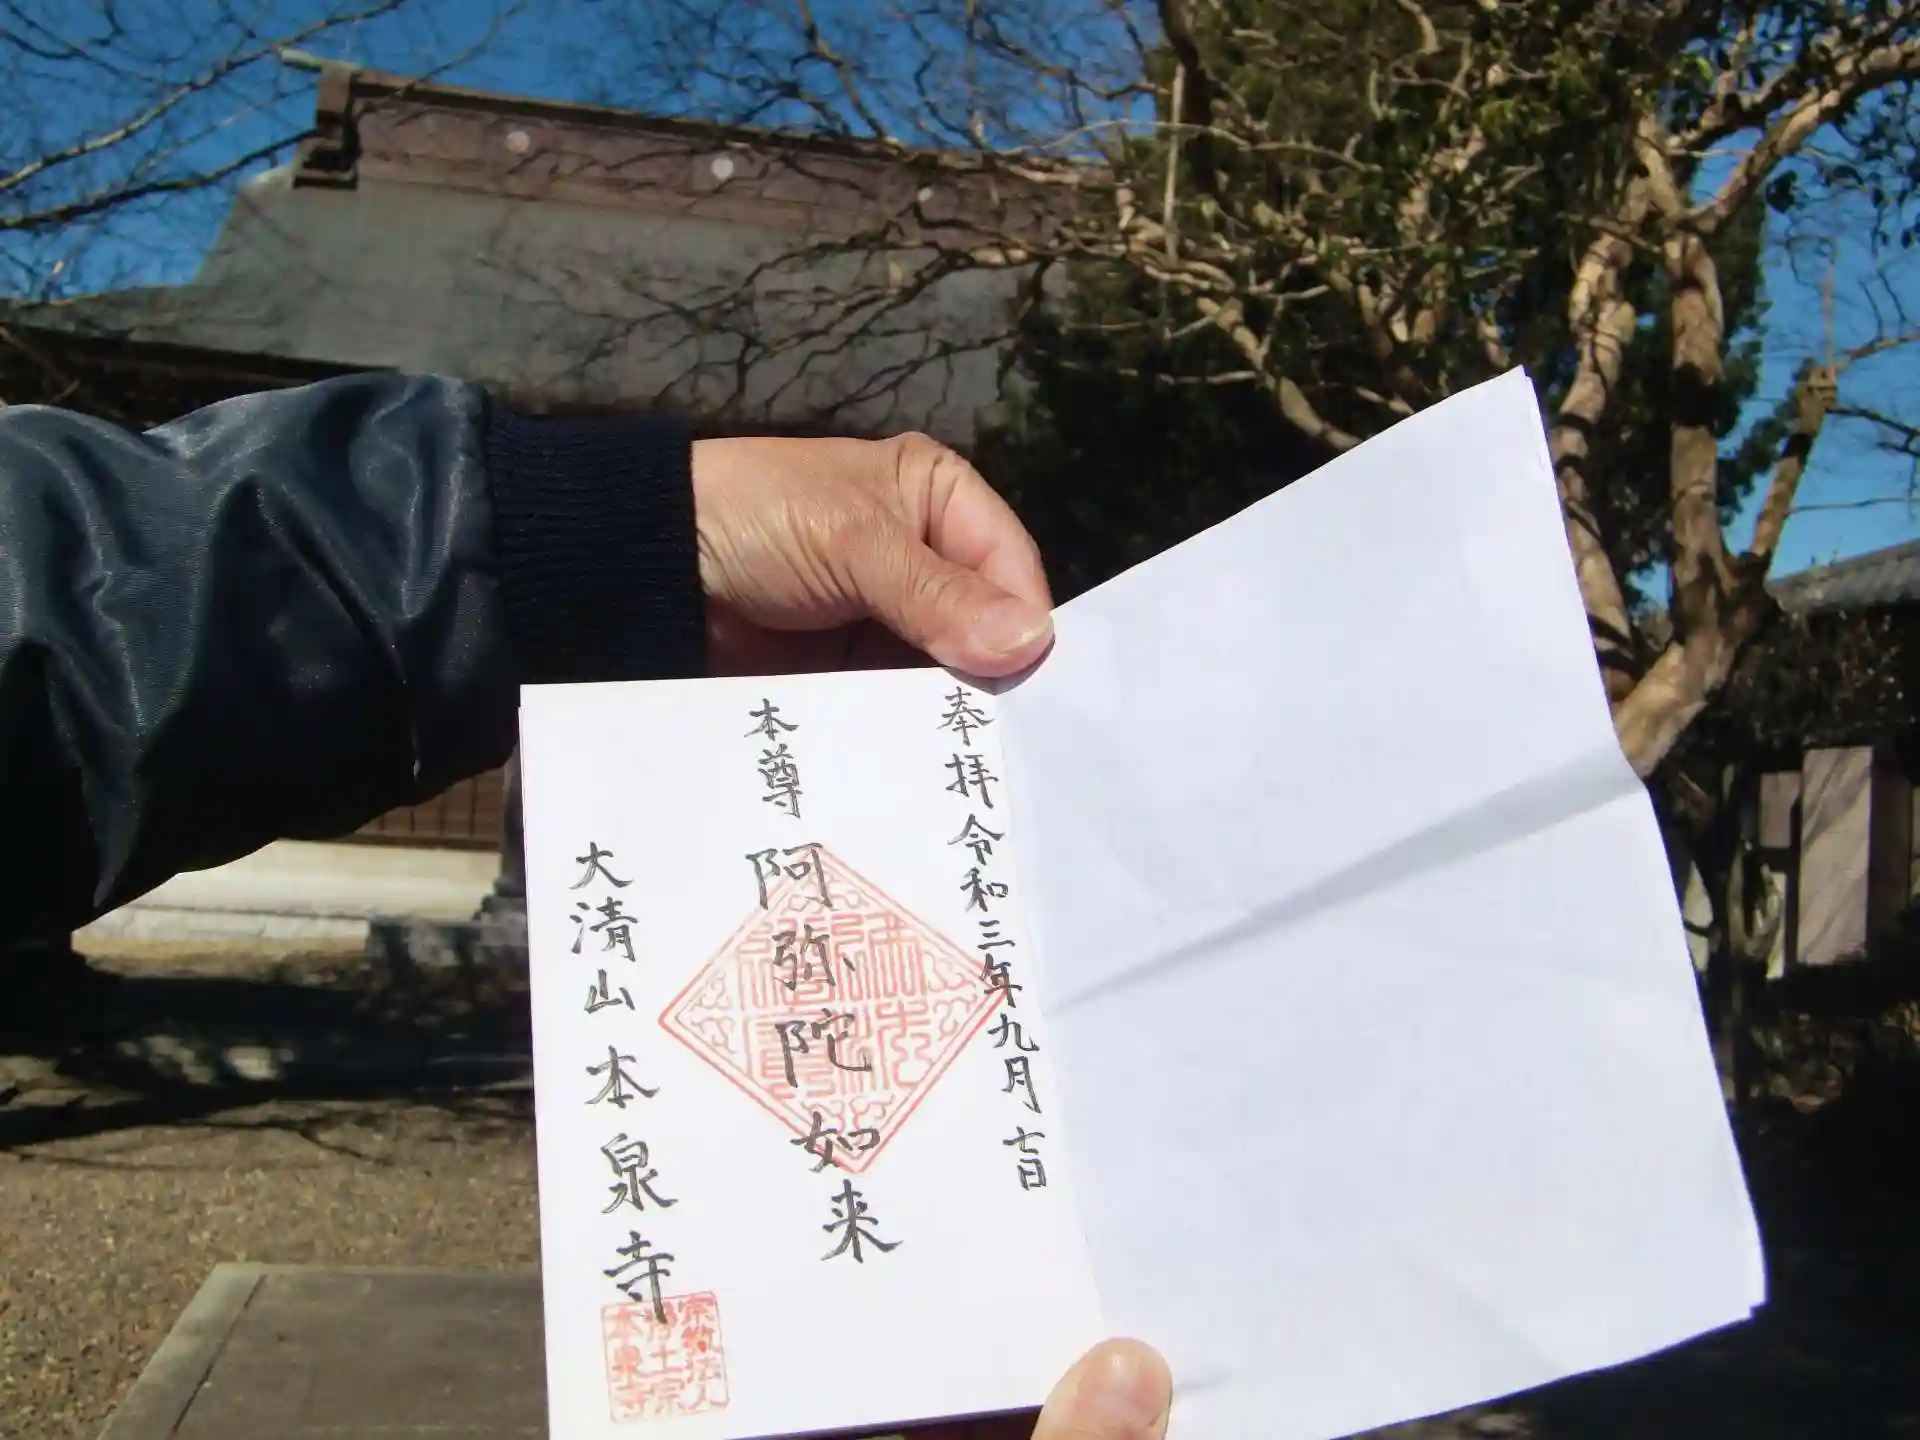 奉拝 令和三年九月七日
本尊 阿弥陀如来
大清山 本泉寺
宗教法人
浄土宗
本泉寺